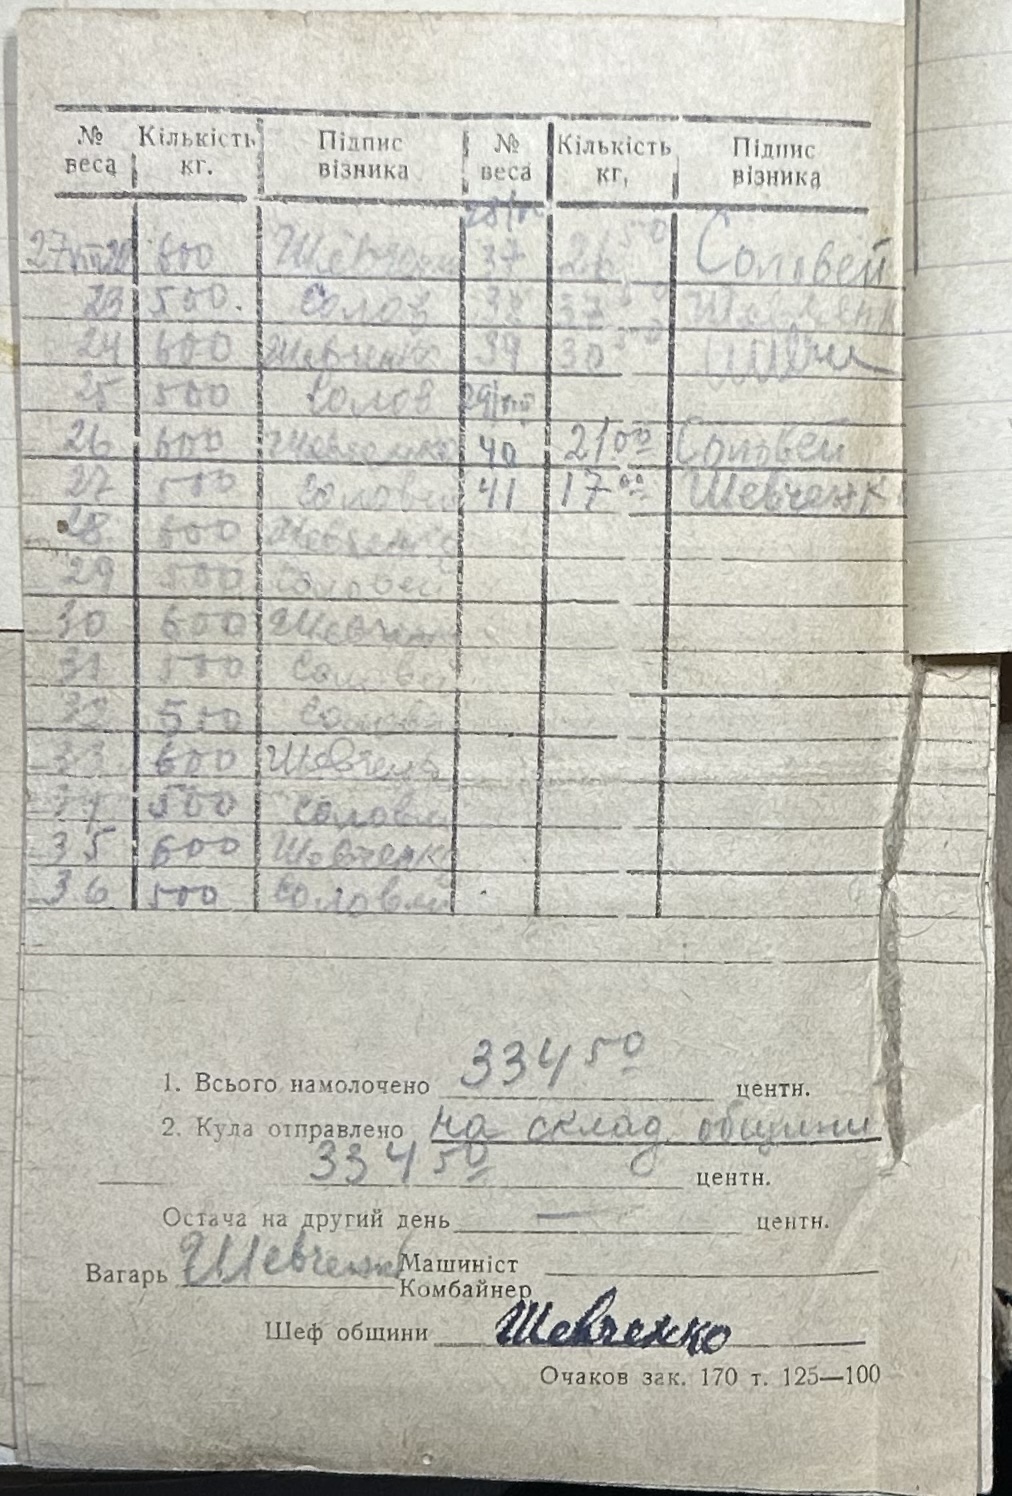 № веса Кількість кг. Підпис візника № веса Кількість кг. Підпис візника
28/VIII
600 Шевченк 37 26 50 Соловей
23 500. Солов 38 37 Шевченк
24 600 Шевченко 39 30 Шевч
25 500 Солов 29/VIII
26 600 Шевченко 40 21 00 Соловей
27 500 Соловей 41 17 00 Шевченк
28 600 Шевченко
29 500 Соловей
30 600 Шевченк
31 500 Соловей
32 500 Соловей
33 600 Шевченко
34 500 Соловей
35 600 Шевченко
36 500 Соловей
1. Всього намолочено 334 50 центн.
2. Кула отправлено на склад общини
334 50 центн.
Остача на другий день — центн.
Вагарь Шевченко Машиніст
Комбайнер
Шеф общини Шевченко
Очаков зак. 170 т. 125—100